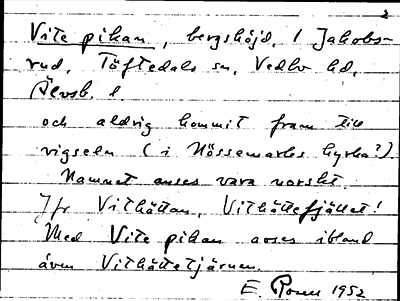 2
Vite pikan, bergshöjd, / Jakobs-
rud, Töftedals sn, Vedbo hd,
Älvsb. l.
och aldrig kommit fram till
vigseln (i Nössemarks kyrka?).
Namnet anses vara norskt.
Jfr Vithättan, Vithättefjället!
Med Vite pikan avses ibland
även Vithättetjärnen.
E. Rosen 1952